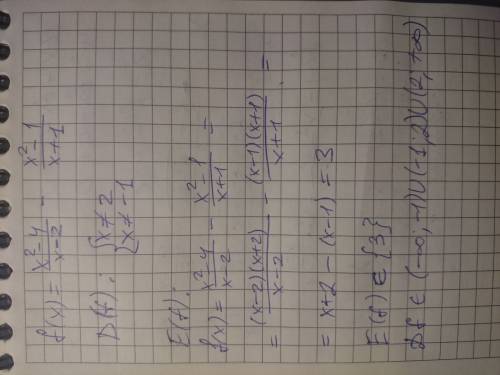 f(x) = \frac{x^2-4}{x-2} - \frac{x^2-1}{x+1}
D(f): { x ≠ 2
x ≠ -1
E(f):
f(x) = \frac{x^2-4}{x-2} - \frac{x^2-1}{x+1} =
= \frac{(x-2)(x+2)}{x-2} - \frac{(x-1)(x+1)}{x+1} =
= x+2 - (x-1) = 3
E(f) ∈ {3}
Df ∈ (-∞; -1)U(-1; 2)U(2; +∞)